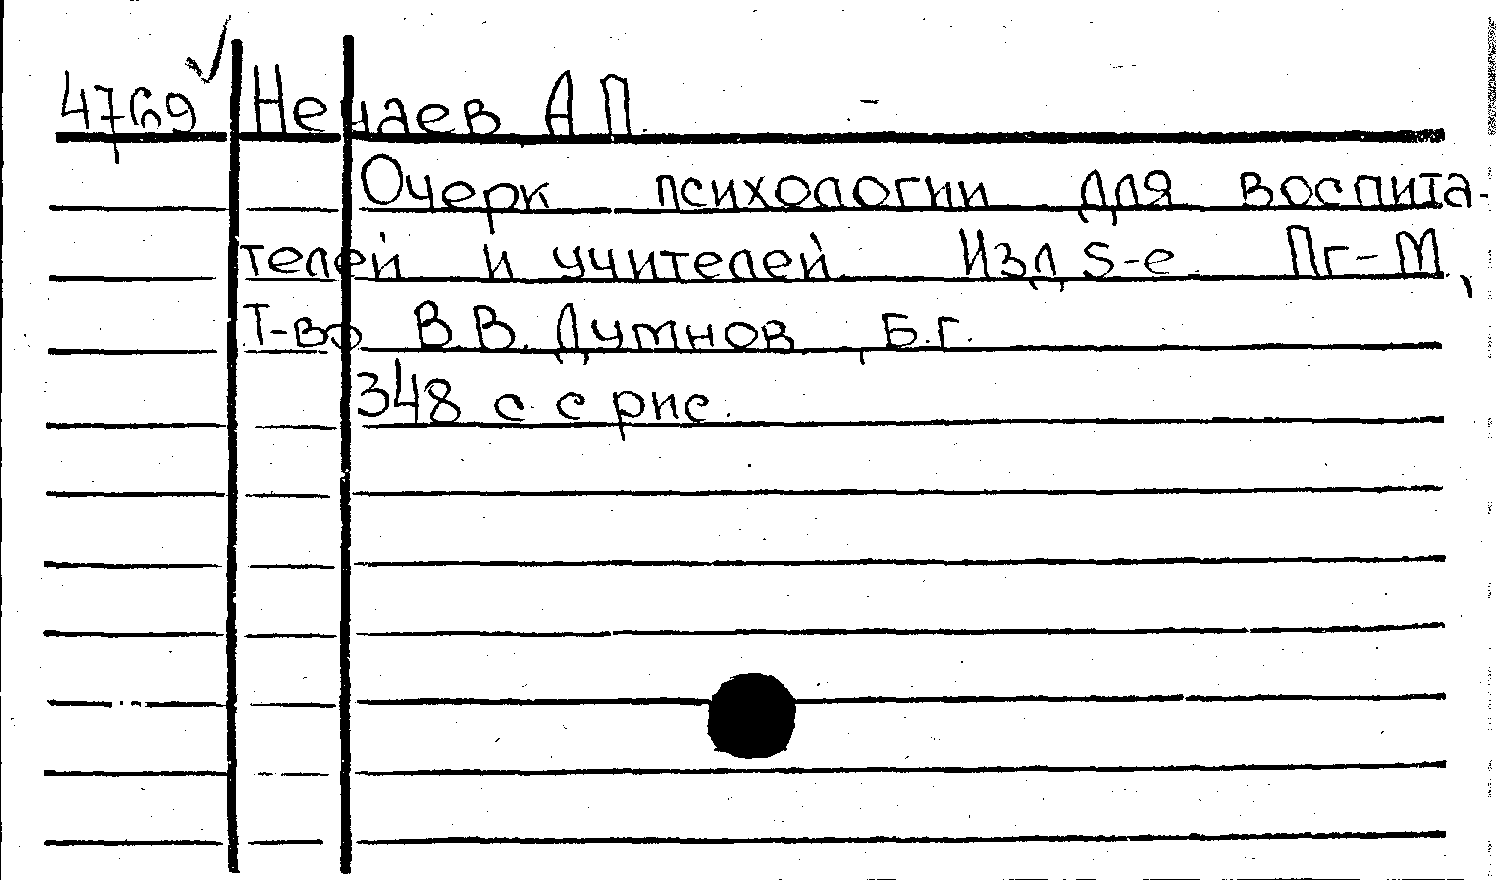 4769 Нечаев А П.
Очерк психологии для воспита-
телей и учителей. Изд 5-е. Пг-М.,
Т-во В В. Думнов, Б.г.
348 с. с рис.